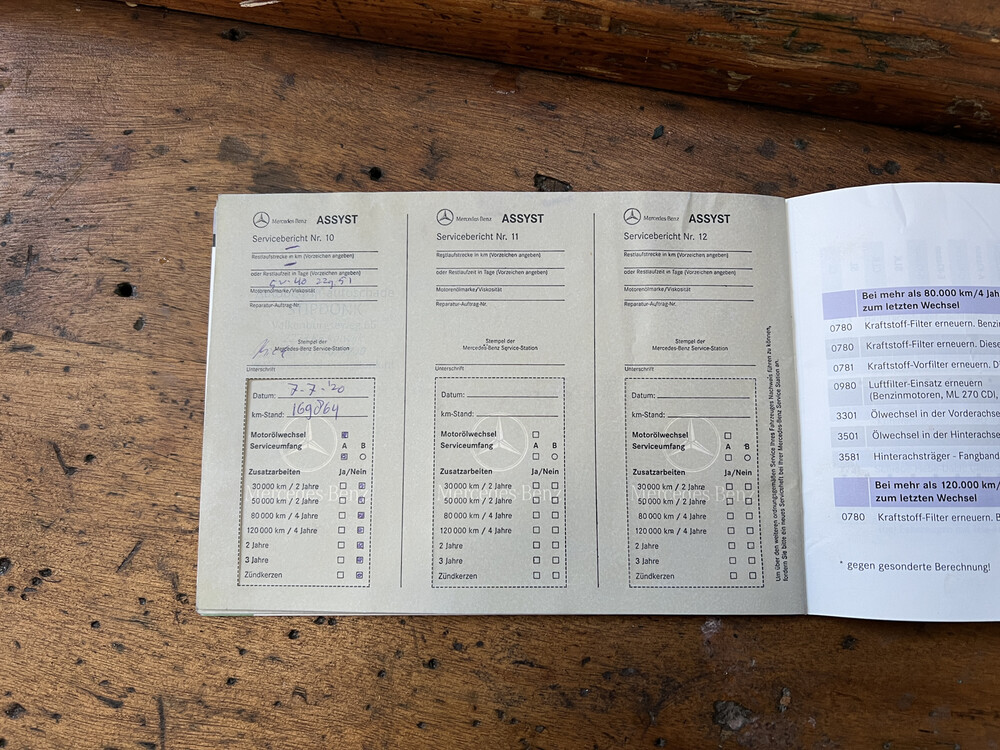 Mercedes-Benz ASSYST
Servicebericht Nr. 10
Restlaufstrecke in km (Vorzeichen angeben)
oder Restlaufzeit in Tage (Vorzeichen angeben)
Motorenölmarke/Viskosität
Reparatur-Auftrag-Nr.
Stempel der
Mercedes-Benz Service-Station
Unterschrift
Datum: 7-7-'20
km-Stand: 169864
Motorölwechsel
Serviceumfang A B
Zusatzarbeiten Ja/Nein
30 000 km / 2 Jahre
50 000 km / 2 Jahre
80 000 km / 4 Jahre
120 000 km / 4 Jahre
2 Jahre
3 Jahre
Zündkerzen
Mercedes-Benz
Mercedes-Benz ASSYST
Servicebericht Nr. 11
Restlaufstrecke in km (Vorzeichen angeben)
oder Restlaufzeit in Tage (Vorzeichen angeben)
Motorenölmarke/Viskosität
Reparatur-Auftrag-Nr.
Stempel der
Mercedes-Benz Service-Station
Unterschrift
Datum:
km-Stand:
Motorölwechsel
Serviceumfang A B
Zusatzarbeiten Ja/Nein
30 000 km / 2 Jahre
50 000 km / 2 Jahre
80 000 km / 4 Jahre
120 000 km / 4 Jahre
2 Jahre
3 Jahre
Zündkerzen
Mercedes-Benz
Mercedes-Benz ASSYST
Servicebericht Nr. 12
Restlaufstrecke in km (Vorzeichen angeben)
oder Restlaufzeit in Tage (Vorzeichen angeben)
Motorenölmarke/Viskosität
Reparatur-Auftrag-Nr.
Stempel der
Mercedes-Benz Service-Station
Unterschrift
Datum:
km-Stand:
Motorölwechsel
Serviceumfang A B
Zusatzarbeiten Ja/Nein
30 000 km / 2 Jahre
50 000 km / 2 Jahre
80 000 km / 4 Jahre
120 000 km / 4 Jahre
2 Jahre
3 Jahre
Zündkerzen
Mercedes-Benz
Um über den weiteren ordnungsgemäßen Service Ihres Fahrzeuges Nachweis führen zu können,
fordern Sie bitte ein neues Serviceheft bei Ihrer Mercedes-Benz Service Station an.
Bei mehr als 80.000 km/4 Jah
zum letzten Wechsel
0780 Kraftstoff-Filter erneuern. Benzi
0780 Kraftstoff-Filter erneuern. Diese
0781 Kraftstoff-Vorfilter erneuern. D
0980 Luftfilter-Einsatz erneuern
(Benzinmotoren, ML 270 CDI,
3301 Ölwechsel in der Vorderachse
3501 Ölwechsel in der Hinterachse
3581 Hinterachsträger - Fangband
Bei mehr als 120.000 km/
zum letzten Wechsel
0780 Kraftstoff-Filter erneuern. B
* gegen gesonderte Berechnung!